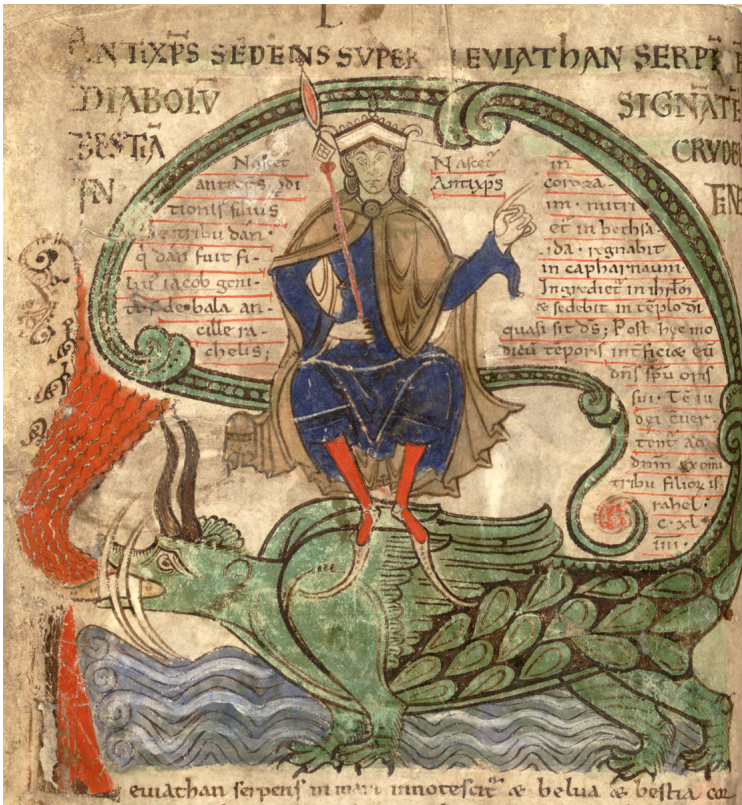 ANTIXP̅S SEDENS SUPER LEVIATHAN SERPE
DIABOLU̅ SIGNANTE
BESTIA̅ CRUDE
IN FINE
Nascet̅
antixp̅s p̅di
tionis filius
de tribu dan·
q̅ dan fuit fi-
lius iacob geni-
tus de bala an-
cille ra-
chelis;
Nascet̅ in
Antixp̅s coroza-
im· nutri
et̅ in bethsa-
ida· regnabit
in capharnaum·
Ingrediet̅ in ihrl̅m
& sedebit in te̅plo d̅i
quasi sit d̅s; Post hęc mo
dicu̅ te̅poris int̅ficiet eu̅
dn̅s sp̅u oris
sui· Te iu
dei
tent ad
dn̅m ex omi
tribu filior is
rahel·
c·xl
iiii·
eviathan serpens in mari innotescit̅ & belua & bestia